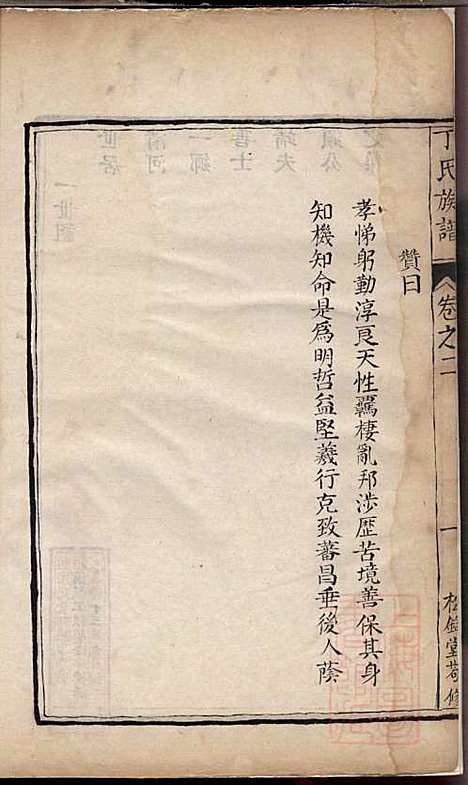 丁氏族譜
卷之二
一
贊曰
孝悌躬勤淳良天性羈棲亂邦涉歷苦境善保其身
知機知命是為明哲益堅義行克致蕃昌垂後人蔭